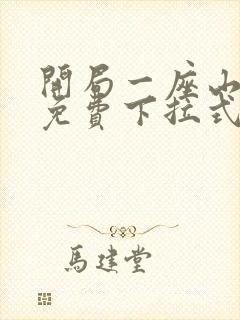 開局一座山
免費下拉式
馬建堂